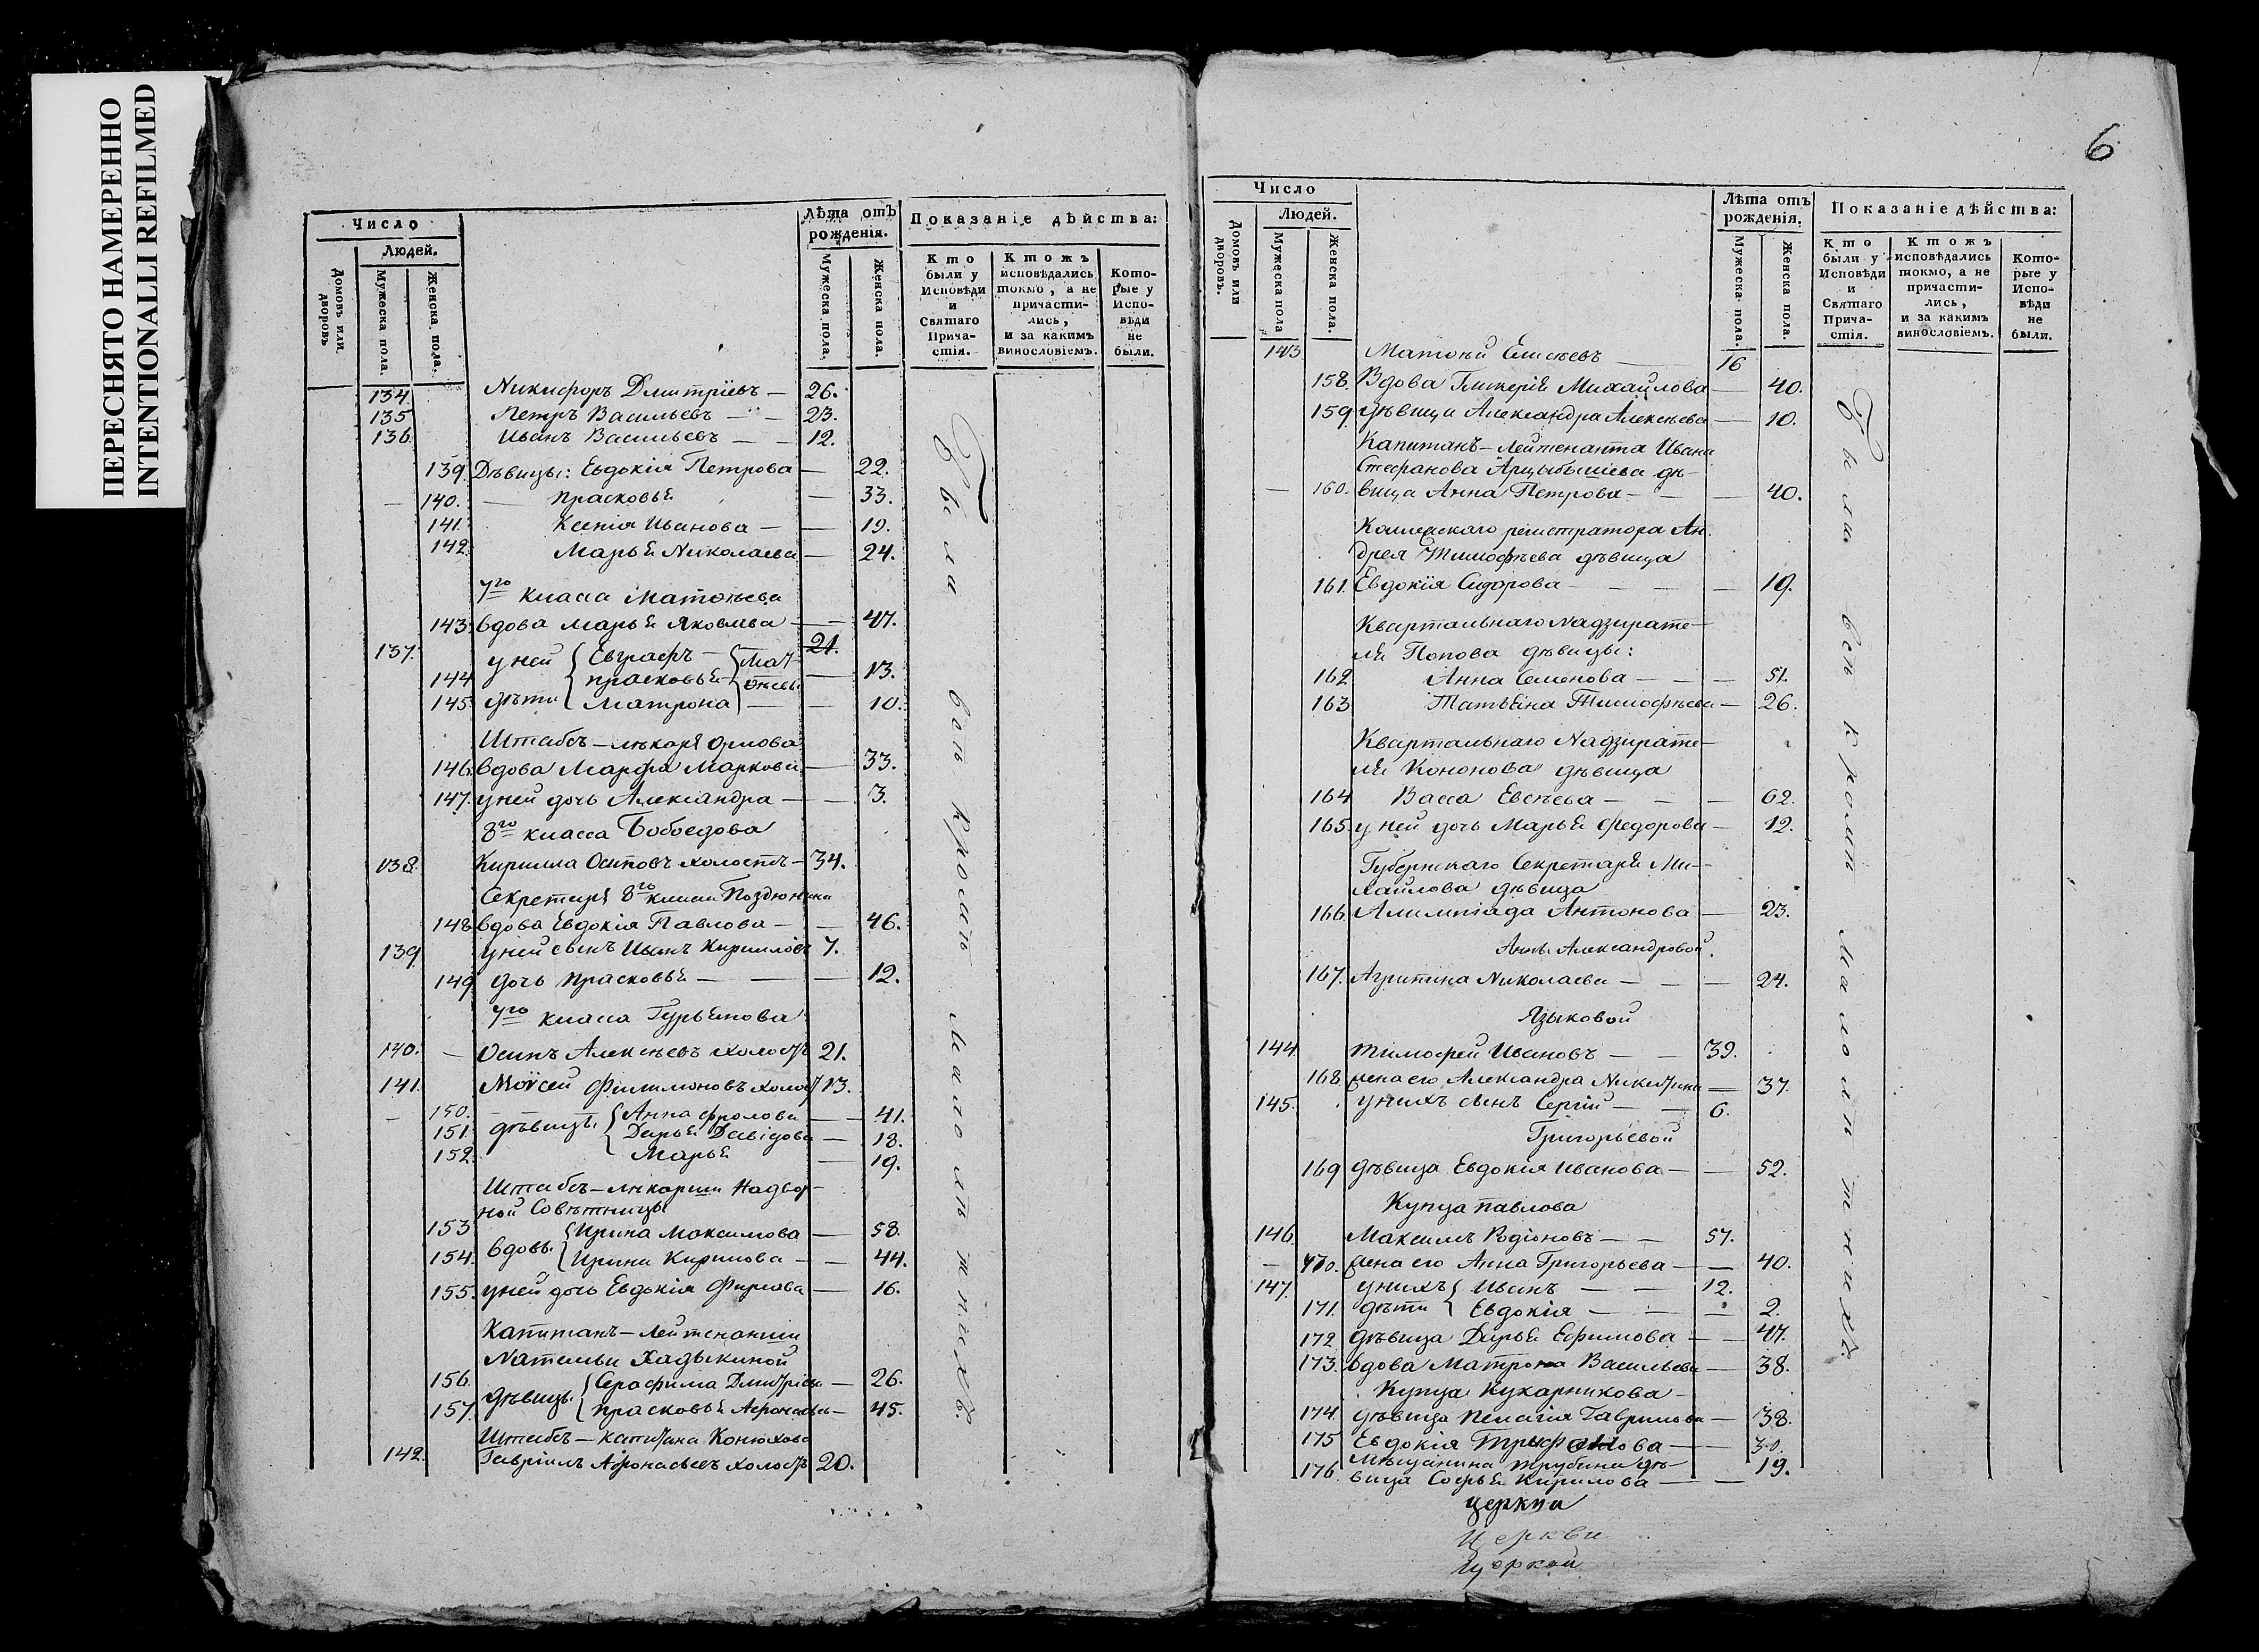 ПЕРЕСНЯТО НАМЕРЕННО
INTENTIONALLI REFILMED
Число
Людей.
Домовъ или дворовъ
Мужеска пола.
Женска пола.
Лѣта отъ рожденія.
Мужеска пола.
Женска пола.
Показаніе дѣйства:
Кто были у Исповѣди и Святаго Прича-стія.
Ктожъ исповѣдались токмо, а не причасти-лись, и за какимъ винословіемъ.
Кото-рые у Испо-вѣди не были.
134. Никифоръ Дмитріевъ — 26.
135 Петръ Васильевъ — — 23.
136. Иванъ Васильевъ — — 12.
139. Дѣвицы: Евдокія Петрова — 22.
— 140. — Прасковья — 33.
141. Ксенія Иванова — — 19.
142. Марья Николаева — 24.
7го класса Матѳѣева
143. вдова Марья Яковлева — — 47.
137. у ней Евграфъ — Мат- 21.
144 Прасковья ѳѣевы — 13.
145. дѣти Матрона — — 10.
Штабсъ-лѣкаря Орлова
146. вдова Марфа Маркова — 33.
147. у ней дочь Александра — — 3.
8го класса Бобоедова
138. Кирилла Осиповъ холостъ — 34.
Секретаря 8го класса Поздюнина
148. вдова Евдокія Павлова — — 46.
139. у ней сынъ Иванъ Кириловъ 7.
149. дочь Прасковья — — — 12.
7го класса Гурьянова
140. — Осипъ Алексѣевъ холостъ 21.
141. Моѵсей Филимоновъ холостъ 13.
— 150. Анна Фролова — — 41.
151. дѣвицы Дарья Давідова — 18.
152. Марья — 19.
Штабсъ-лѣкарши Надвор-
ной Совѣтницы
153 Ирина Максимова — 58.
154. вдовы Ирина Кирилова — — 44.
155. у ней дочь Евдокія Фирсова — 16.
Капитанъ-Лейтенанши
Натальи Хадыкиной
156. Серафима Дмитріева — 26.
157. дѣвицы Прасковья Афонасьева — 45.
Штабсъ-капитана Конюхова
142. Гавріилъ Афонасьевъ холостъ 20.
Были всѣ кромѣ малолѣтнихъ.
6
Число
Людей.
Домовъ или дворовъ.
Мужеска пола
Женска пола.
Лѣта отъ рожденія.
Мужеска пола.
Женска пола.
Показаніе дѣйства:
Кто были у Исповѣди и Святаго Прича-стія.
Ктожъ исповѣдались токмо, а не причасти-лись, и за какимъ винословіемъ.
Кото-рые у Испо-вѣди не были.
143. Матѳѣй Елисѣевъ 16
158. Вдова Гликерія Михайлова — 40.
159. дѣвица Александра Алексѣева — 10.
Капитанъ-Лейтенанта Ивана
Стефанова Арцыбышева дѣ-
— 160. вица Анна Петрова — — — 40.
Коллежскаго регистратора Ан-
дрея Тимофѣева дѣвица
161. Евдокія Сидорова — — — — 19.
Квартальнаго Надзирате-
ля Попова дѣвицы:
162 Анна Семенова — — — 51.
163 Татьяна Тимофѣева — 26.
Квартальнаго Надзирате-
ля Кононова дѣвица
164 Васса Евсѣева — — — 62.
165. у ней дочь Марья Федорова — 12.
Губернскаго Секретаря Ми-
хайлова дѣвица
166. Алимпіада Антонова — 23.
Анны Александровой.
167. Агрипина Николаева — — — 24.
Языковой
144. Тимофей Ивановъ — — 39.
168. жена его Александра Никитина — 37.
145. у нихъ сынъ Сергій — — 6.
Григорьевой
169 дѣвица Евдокія Иванова — — 52.
Купца Павлова
146. Максимъ Родіоновъ — — 57.
— 170. жена его Анна Григорьева — — 40.
147. у нихъ Иванъ — — 12.
171. дѣти Евдокія — — — 2.
172 дѣвица Дарья Ефимова — — 47.
173. вдова Матрона Васильева — 38.
Купца Кухарникова —
174. дѣвица Пелагія Гаврилова — 38.
175 Евдокія Трифонова — — 30.
Мѣщанина Трубина дѣ-
176. вица Софья Кирилова — — 19.
Были всѣ кромѣ малолѣтнихъ.
церкви
Церкви
Церкви